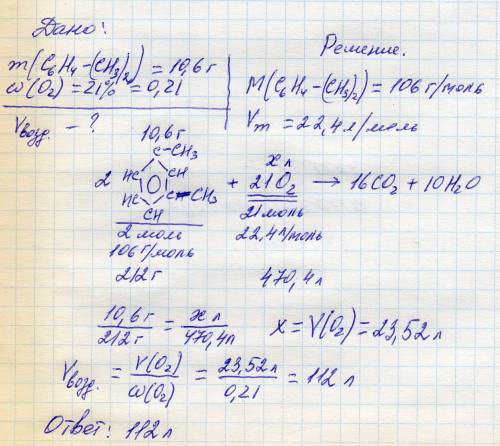 Дано:
m(C₆H₄-(CH₃)₂) = 10,6 г
ω(O₂) = 21% = 0,21
Vвозд. - ?
Решение.
M(C₆H₄-(CH₃)₂) = 106 г/моль
Vm = 22,4 л/моль
10,6 г
x л
C-CH₃
HC CH
2 + 21O₂ → 16CO₂ + 10H₂O
HC C-CH₃
CH
2 моль
21 моль
106 г/моль
22,4 л/моль
212 г
470,4 л
10,6 г / 212 г = x л / 470,4 л x = V(O₂) = 23,52 л
Vвозд. = V(O₂) / ω(O₂) = 23,52 л / 0,21 = 112 л
Ответ: 112 л